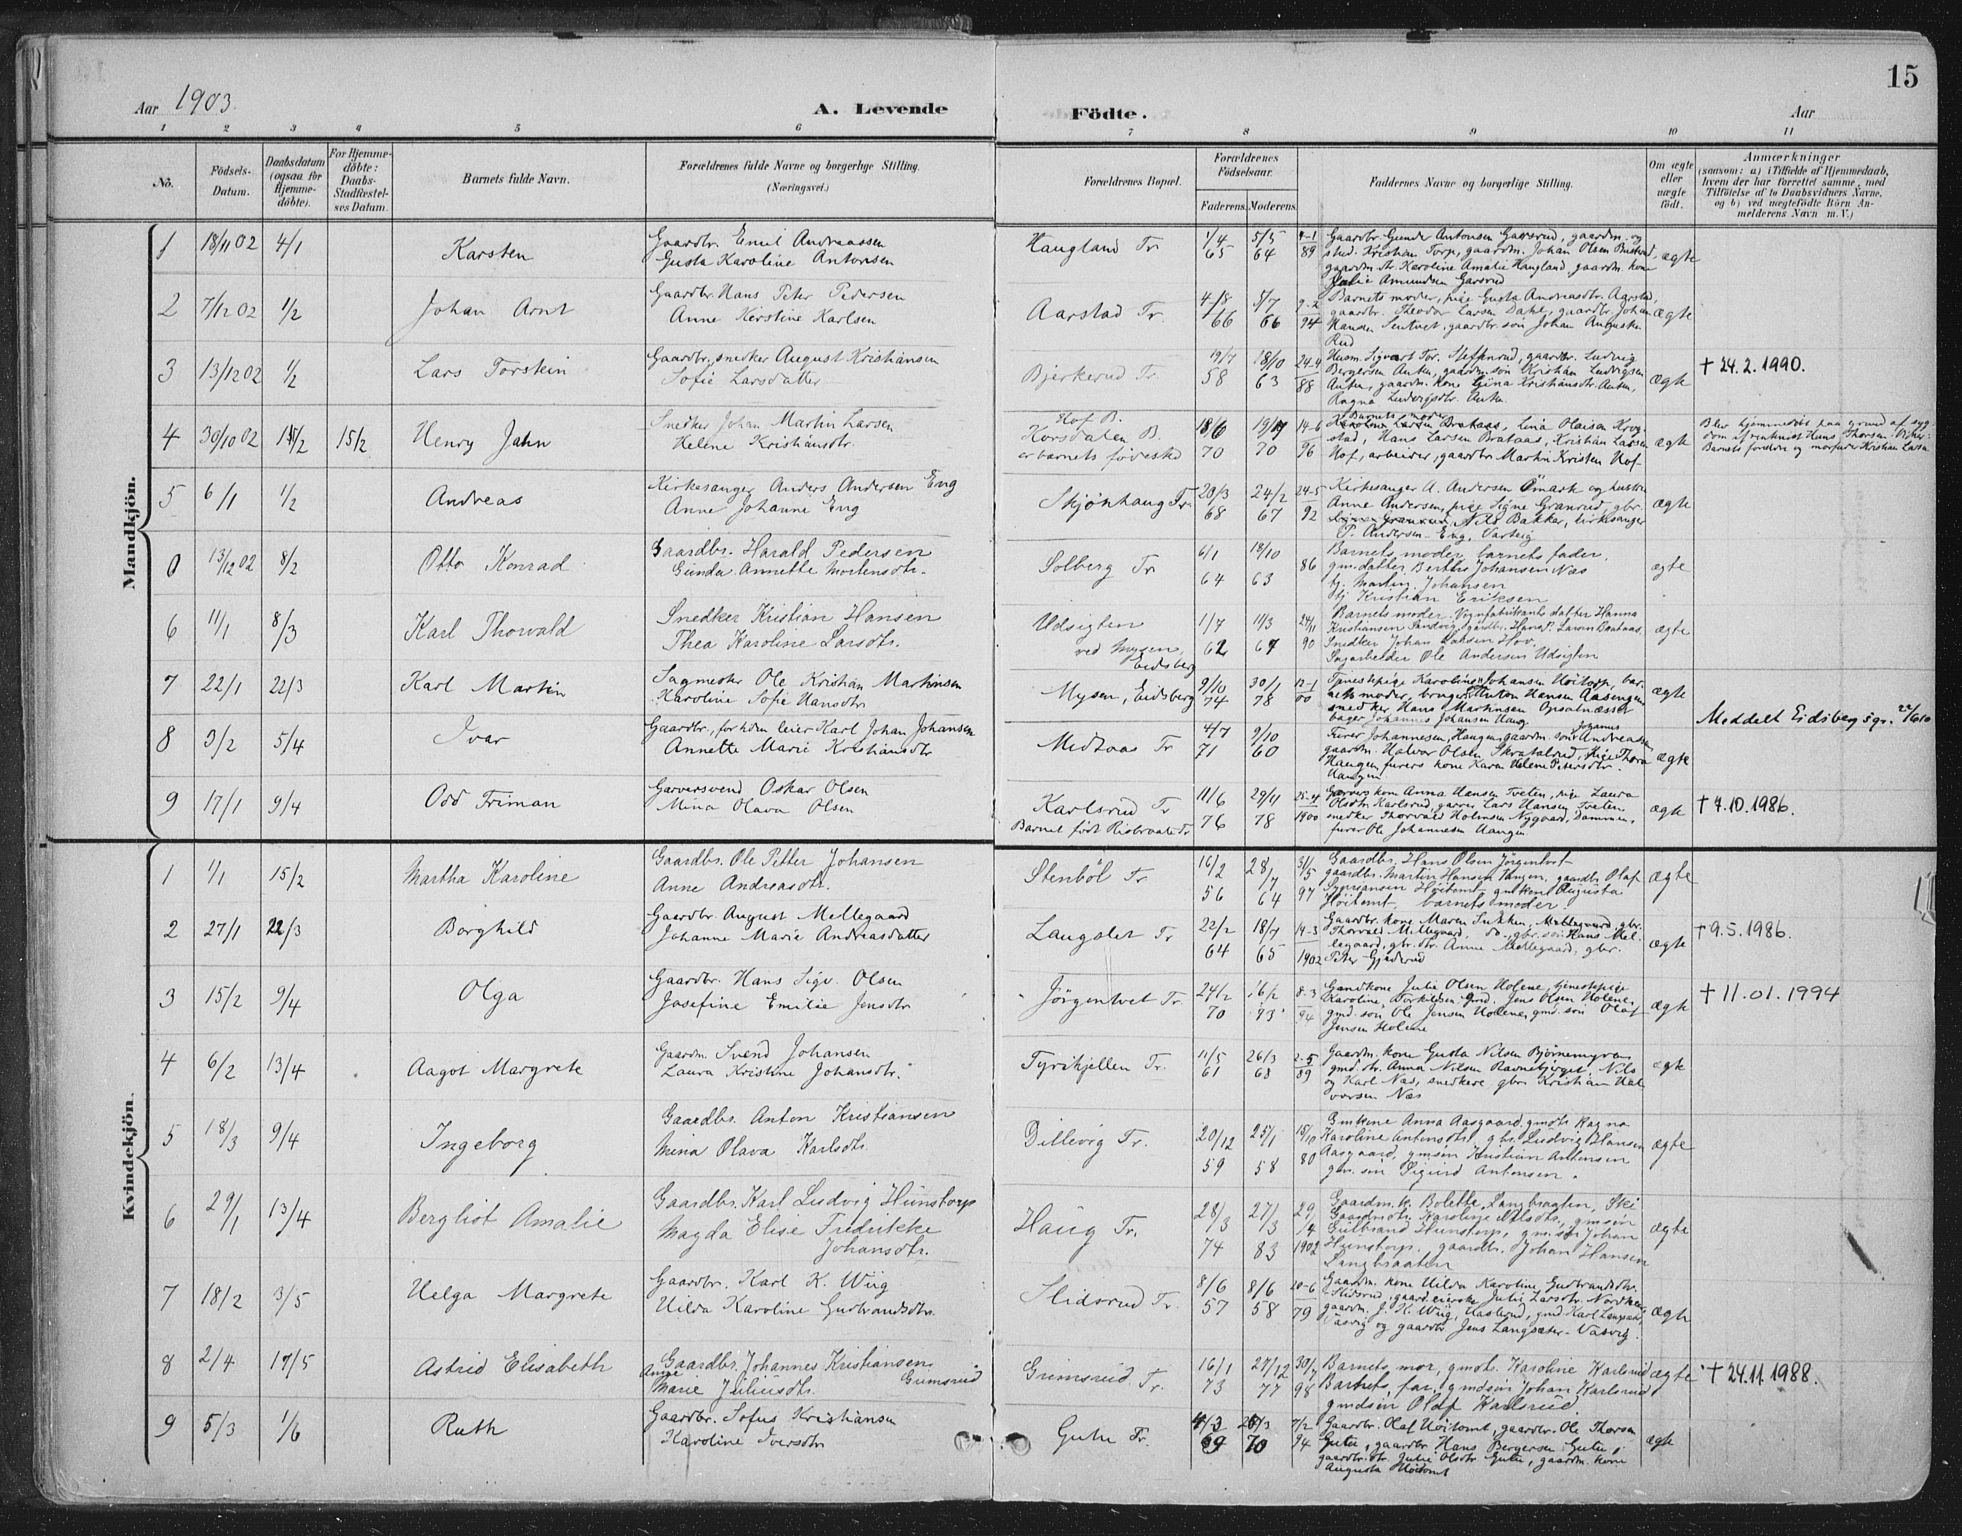 15
Aar 1903.
A. Levende Födte.
Aar
1 2 3 4 5 6 7 8 9 10 11
No.
Födsels-Datum.
Daabsdatum (ogsaa for Hjemme-döbte).
For Hjemme-döbte: Daabs-Stadfæstel-ses Datum.
Barnets fulde Navn.
Forældrenes fulde Navne og borgerlige Stilling.
(Næringsvei.)
Forældrenes Bopæl.
Forældrenes Födselsaar.
Faderens. Moderens.
Faddernes Navne og borgerlige Stilling.
Om ægte eller uægte födt.
Anmærkninger
(saasom: a) i Tilfælde af Hjemmedaab,
hvem der har forrettet samme, med
Tilföielse af to Daabsvidners Navne,
og b) ved uægtefödte Börn An-
melderens Navn m. V.)
Mandkjön.
1 18/11 02 4/1 Karsten
Gaardbr. Emil Andreassen
Gusta Karoline Antonsen
Haugland Tr
1/4 65 5/5 64
4-1 89
Gaardbr. Gunder Antonsen Gaasrud, gaardm. og
stud. Kristian Torp, gaardm. Johan Olsen
gaardm. dtr. Karoline Amalie Haugland, gaardm. kone
Julie Amundsen Gaasrud
ægte
2 7/12 02 1/2 Johan Arnt
Gaardbr. Hans Peter Pedersen
Anne Kirstine Karlsen
Aarstad Tr.
4/8 66 5/7 66
9-2 94
Barnets moder, pige Gusta Andreasdtr. Aarstad,
gaardbr. Theodor Larsen Dahl, gaardbr. Johan
Hansen Sentvet, gaardbr. søn Johan Augustsen
Rud
ægte
3 13/12 02 1/2 Lars Torstein
Gaardbr., snedker August Kristiansen
Sofie Larsdatter
Bjerkerud Tr.
19/7 58 18/10 63
24-4 88
Husm. Sigvart Tor. Steffenrud, gaardbr. Ludvig
Bergersen Anker, gaardm. søn Kristian Ludvigsen
Anker, gaardm. kone Gina Kristiansdtr. Anker,
Ragna Ludvigsdtr. Anker
ægte
† 24.2.1990.
4 30/10 02 15/2 15/2 Henry Jahn
Snedker Johan Martin Larsen
Helene Kristiansdtr
Hof B.
Korsdalen B.
er barnets fødested
18/6 70 19/ 70
14-6 96
Barnets moder
Karoline Larsen Brataas, Lina Olaisen Krog-
stad, Hans Larsen Brataas, Kristian Larsen
Hof, arbeider, gaardbr. Martin Kristen Hof
ægte
Blev hjemmedøbt paa grund af syg-
dom af Hans Thorsen
Barnets foreldre og morfader Kristian Larsen
5 6/1 1/2 Andreas
Kirkesanger Anders Andersen Eng
Anne Johanne Eng
Skjönhaug Tr.
20/3 68 24/2 67
24-5 92
Kirkesanger A. Andersen Ömark og hustru
Anne Andersen, pige Signe Granrud, gbr.
Nils Bakker, kirkesanger
P. Andersen Eng, Varteig
ægte
0 13/12 02 8/2 Otto Konrad
Gaardbr. Harald Pedersen
Gunda Annette Mortensdtr.
Solberg Tr
6/1 64 18/10 63
86
Barnets moder, barnets fader,
gm. datter Berthe Johansen Næs
tj. Martin Johansen
tj. Kristian Eriksen
ægte
6 11/1 8/3 Karl Thorvald
Snedker Kristian Hansen
Thea Karoline Larsdtr.
Udsigten
ved Mysen,
Eidsberg
1/7 62 11/3 67
24/11 90
Barnets moder. Vognfabrikants datter Hanna
Kristiansen Sandvig, gardbr. Hans P. Larsen Brataas.
Snedker Johan Larsen Hov.
Sagarbeider Ole Andersen Udsigten
ægte
7 22/1 22/3 Karl Martin
Sagmester Ole Kristian Martinsen
Karoline Sofie Hansdtr
Mysen, Eidsberg
9/10 74 30/1 78
12-1 00
Tjenestepige Karoline Johansen Höitopp, bar-
nets moder, bruger Anton Hansen Aasengen
snedker Hans Martinsen Opsalnæsset
bager Johannes Johansen Haug
ægte
Meddelt Eidsberg sgr. 22/6 10
8 3/2 5/4 Ivar
Gaardbr., forhen leier Karl Johan Johansen
Annette Marie Kristiansdtr
Medtaas Tr
4/7 71 9/10 60
Furer Johannesen, Haugen, gaardm. søn Johannes Andreassen
gaardm. Halvor Olsen Skratelrud, pige Thora
Haugen, furers kone Karen Helene Petersdtr.
Haugen
ægte
9 17/1 9/4 Odd Friman
Garversvend Oskar Olsen
Mina Olava Olsen
Karlsrud Tr
Barnet født Risbraate Tr
11/6 76 29/11 78
25-4 1900
Garvers kone Anna Hansen Tveten, pige Laura
Olsdtr. Karlsrud, garver Lars Hansen Tveten.
snedker Thorvald Holmsen Nygaard, Dammen,
furer Ole Johannesen Haugen
ægte
† 7.10.1986.
Kvindekjön.
1 1/1 15/2 Martha Karoline
Gaardbr. Ole Petter Johansen
Anne Andreasdtr.
Stenböl Tr.
16/2 56 28/7 64
31/5 97
Gaardbr. Hans Olsen Jörgentvet
gaardbr. Martin Hansen Tangen, gaardbr. Olaf
Syversen Höitomt, gm. kone Augusta
Höitomt, barnets moder.
ægte
2 27/1 22/3 Borghild
Gaardbr. August Mellegaard
Johanne Marie Andreasdatter
Langslet Tr
22/2 64 18/7 65
14-3 1902
Gaardbr. kone Maren Sukken, Mellegaard, gbr.
Thorvald Mellegaard, do., gbr. søn Hans Mel-
legaard, gbr. dtr. Anne Mellegaard, gbr.
Peter Gjederud
ægte
† 9.5.1986.
3 15/2 9/4 Olga
Gaardbr. Hans Sigv. Olsen
Josefine Emilie Jensdtr
Jörgentvet Tr.
24/2 70 16/2 73
8-3 94
Gaardkone Julie Olsen Holene, tjenestepige
Karoline Torkildsen, gmd. Jens Olsen Holene,
gmd. søn Ole Jensen Holene, gmd. søn Olaf
Jensen Holene
ægte
† 11.01.1994
4 6/2 13/4 Aagot Margrete
Gaardm. Svend Johansen
Laura Kristine Johansdtr.
Tyrikjellen Tr.
11/5 61 26/3 68
2-5 89
Gaardm. kone Gusta Nilsen Bjørnemyren
gmd. dtr. Anna Nilsen Ravnebjerget, Nils
og Karl Næs, snedkere, gbr. Kristian Hal-
vorsen Næs
ægte
5 18/3 9/4 Ingeborg
Gaardbr. Anton Kristiansen
Mina Olava Karlsdtr.
Dillevig Tr.
20/12 59 25/1 58
18/10 80
Enkene Anna Aasgaard, gmdtr. Ragna
Karoline Antonsdtr. gbr. Ludvig Hansen
Aasgaard, gmsön Kristian Antonsen
gbr. sön Sigurd Antonsen.
ægte
6 29/1 13/4 Bergliot Amalie
Gaardbr. Karl Ludvig Hunstorp
Magda Elise Fredrikke
Johansdtr.
Haug Tr.
28/3 74 27/3 83
29/4 1902
Gaardm. k. Bolette Langbraaten, Ski
Gaardmdtr. Karoline Nilsdtr, gmsön
Gulbrand Hunstorp, gm. sön Johan
Hunstorp, gaardbr. Johan Hansen
Langbraaten
ægte
7 18/2 3/5 Helga Margrete
Gaardbr. Karl K. Wiig
Hilda Karoline Gudbrandsdtr.
Slidsrud Tr.
8/6 57 8/6 58
20-6 79
Gaardm. kone Hilda Karoline Gudbrandsdtr.
Slidsrud, gaardeierske Julie Larsdtr. Nordker,
gaardm. J. K. Wiig, Haslerud, gmd. Karl Langsæter
Vasvig og gaardbr. Jens Langsæter-Vasvig.
ægte
8 2/4 17/5 Astrid Elisabeth
Gaardbr. Johannes Kristiansen Grimsrud
Anne Marie Juliusdtr.
Grimsrud Tr.
16/1 73 27/12 77
30/7 98
Barnets mor, gmdtr. Karoline Karlsrud
Barnets far, gmdsön Johan Karlsrud
gmdsön Olaf Karlsrud.
ægte
† 24.11.1988.
9 5/3 1/6 Ruth
Gaardbr. Sofus Kristiansen
Karoline Iversdtr
Gutu Tr.
4/3 69 25/3 70
7/2 94
Gaardbr. Olaf Höitomt, gaardbr. Ole Thorsen
Gutu, gaardbr. Hans Bergersen Gutu,
gaardbr. dtr. Julie Olsdtr Gutu, gaardm. kone
Augusta Höitomt
ægte